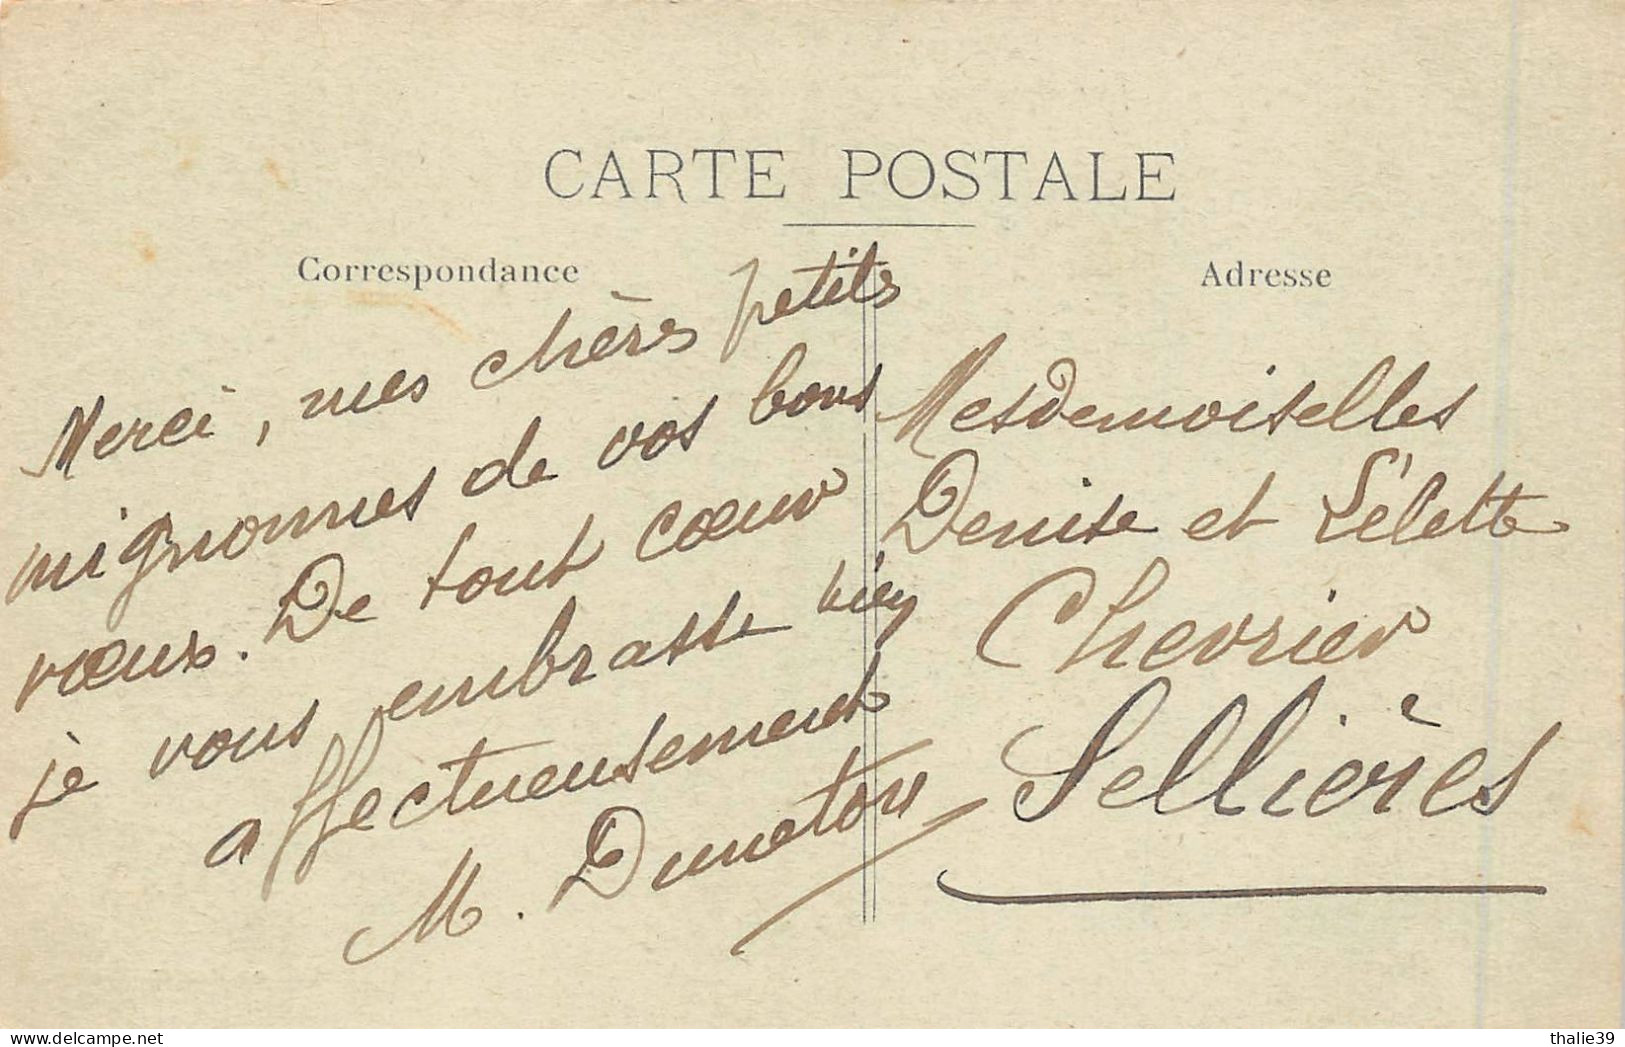 CARTE POSTALE
Correspondance
Merci, mes chères petits
mignonnes de vos bons
vœux. De tout cœur
je vous embrasse bien
affectueusement
M. Duneton
Adresse
Mesdemoiselles
Denise et Lélette
Chevrier
Sellières
thalie39